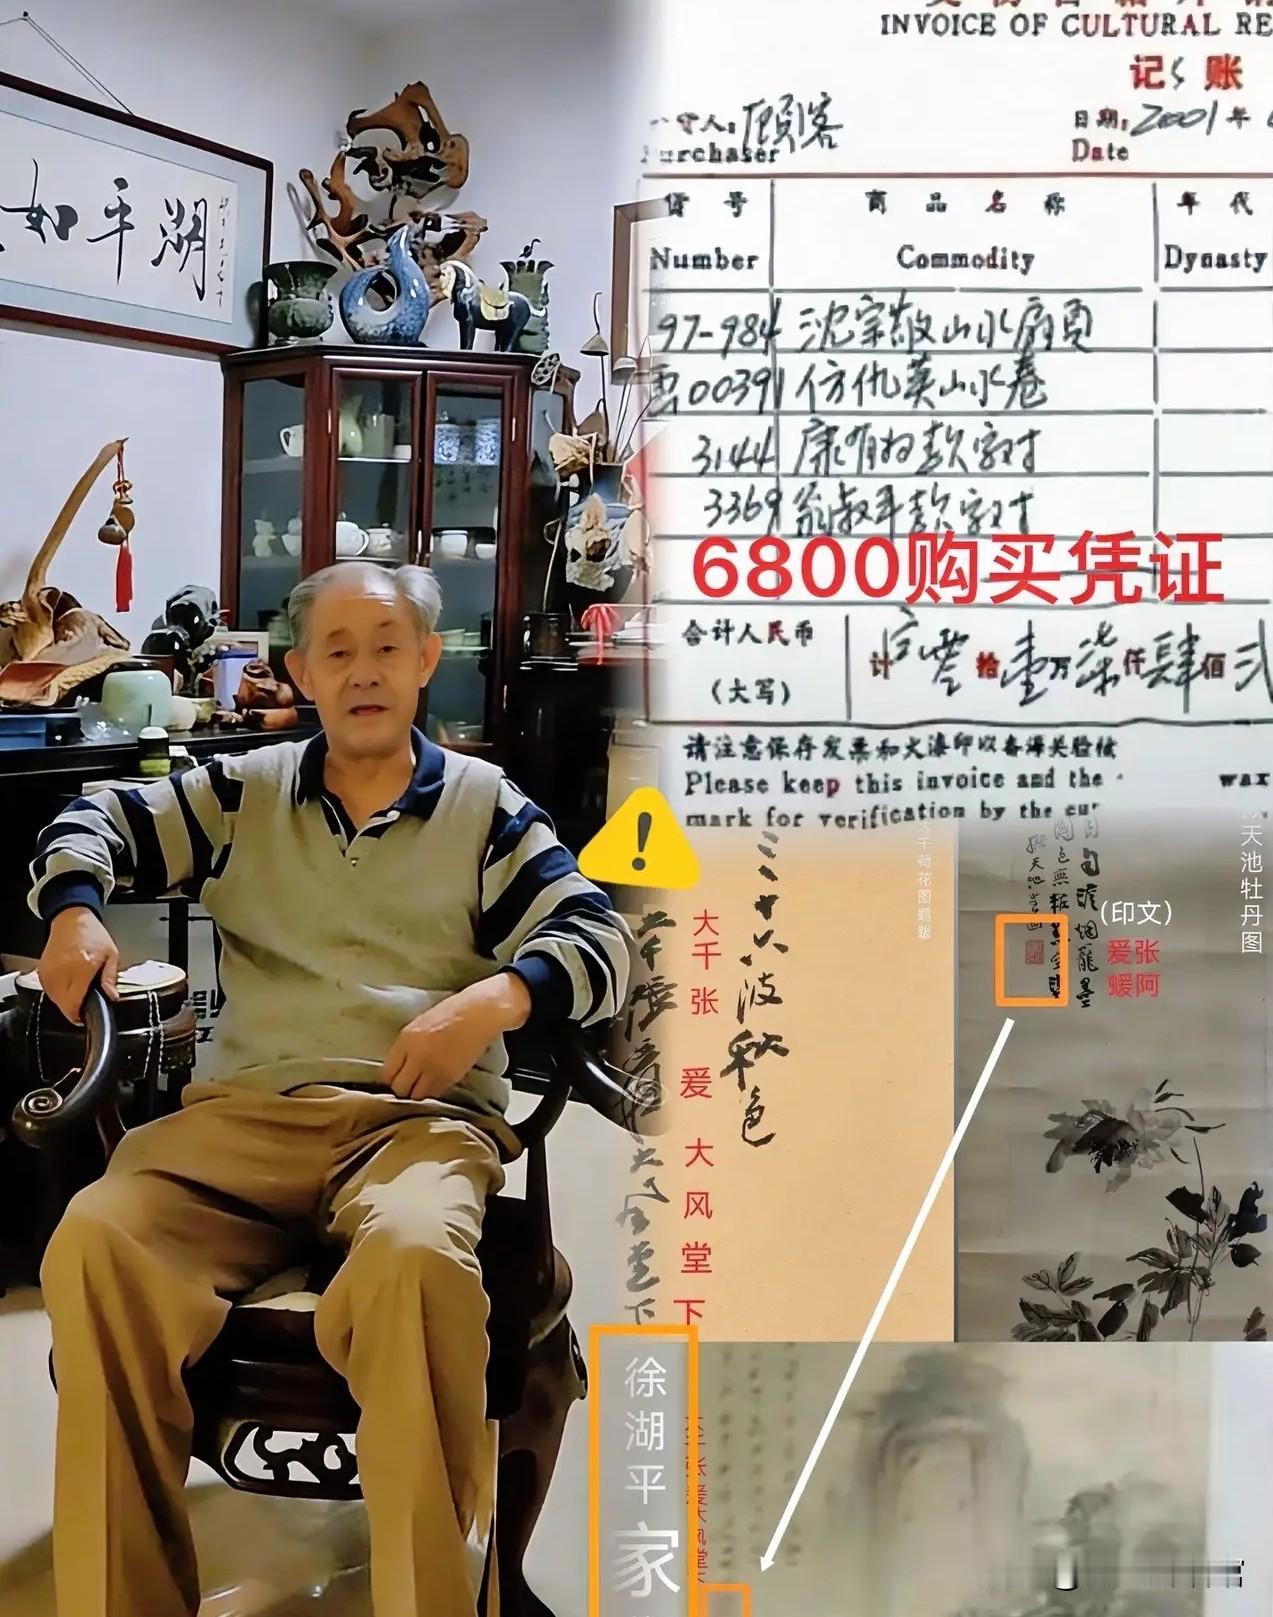 湖平如
INVOICE OF CULTURAL RE
记 账
人：顾客
日期：2001年
Purchaser
Date
货号 商品名称 年代
Number Commodity Dynasty
97-984 沈宗敬山水扇页
00391 仿仇英山水卷
3144 康有为款字对
3369 翁叔平款字对
6800购买凭证
合计人民币
（大写）
计 零 拾 壹 万 柒 仟 肆 佰
请注意保存发票和火漆印以备海关验
Please keep this invoice and the wax
mark for verification by the cu
天池牡丹图
大千荷花图题跋
（印文）
爰张
蝯阿
三十六波秋色
大千张爰大风堂下
大千张 爰大风堂下
徐湖平家